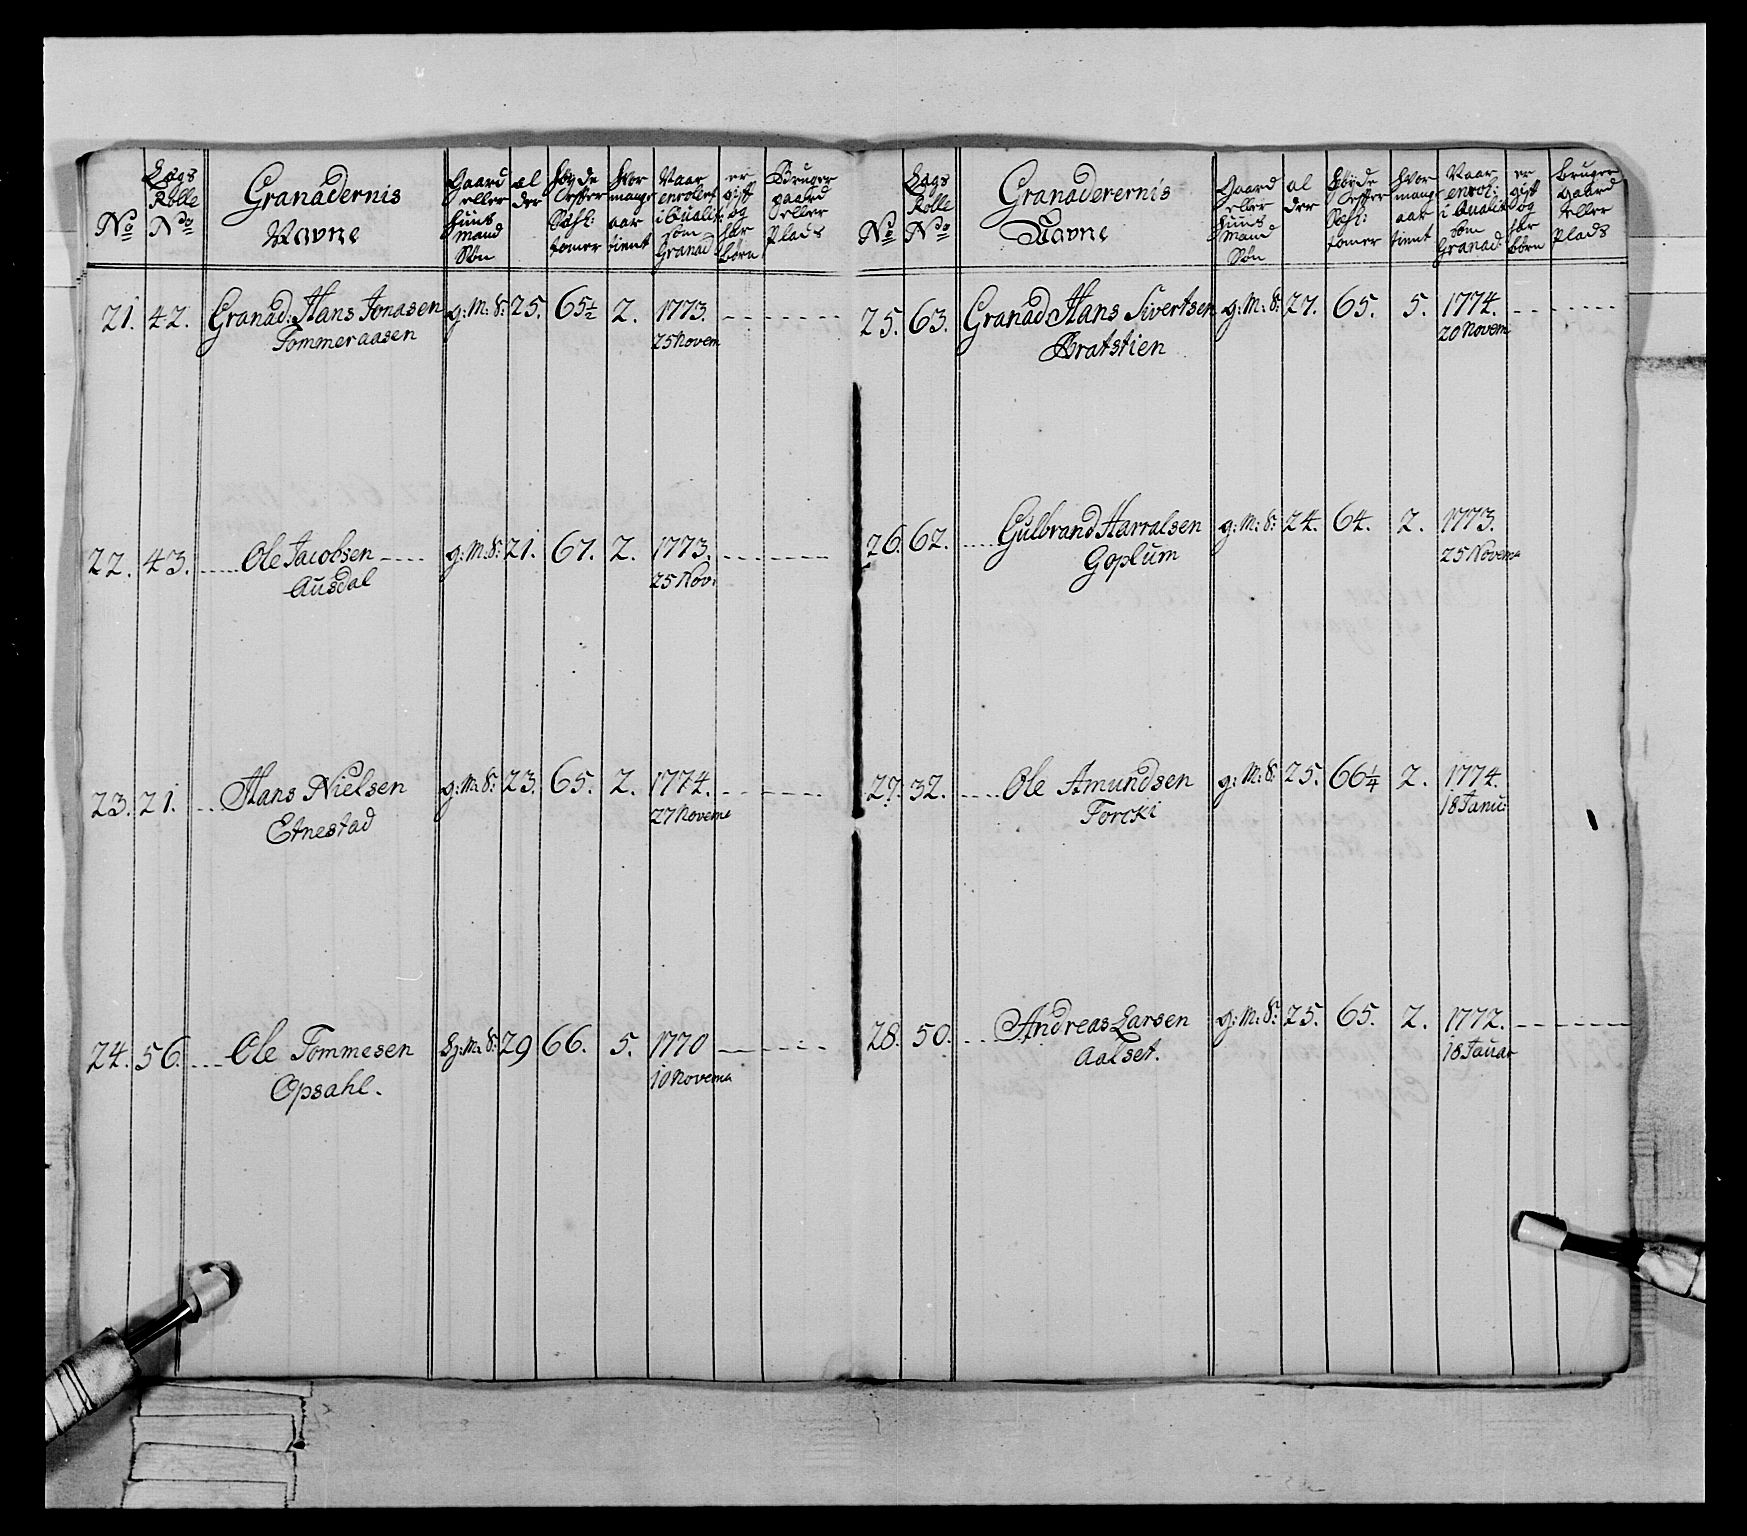 No
Lægs Rolle No
Granadernis Navne
Gaard eller Huus Mand Søn
al der
Høyde efter tomer
Hvor mange aar tient
Naar enrolert i Qualit: som Granad:
er gift og har børn
Bruger gaard eller Plads
21. 42. Granad: Hans Jonasen g: M: S: 25. 65½ 2. 1773.
Tommeraasen 25 Novem
22. 43. Ole Jacobsen g: M: S: 21. 67. 2. 1773.
Ausdal 25 Nov:
23. 21. Hans Nielsen g: M: S: 23. 65. 2. 1774.
Etnestad 27 Novem
24. 56. Ole Tommesen H: M: S: 29 66. 5. 1770
Opsahl. 10 Novem
No
Lægs Rolle No
Granaderernis Navne
Gaard eller Huus Mand Søn
al der
Høyde efter tomer
Hvor mange aar tient
Naar enrol: i Qualit som Granad:
er gift og har børn
Bruger Gaard eller Plads
25. 63. Granad Hans Sivertsen g: M: S: 27. 65. 5. 1774.
Bratstien 20 Novem
26. 62. Gulbrand Harralsen g: M: S: 24. 64. 2. 1773.
Goplum 25 Novem
27. 32. Ole Amundsen g: M: S: 25. 66¼ 2. 1774.
Forcki 18 Janu:
28. 50. Andreas Larsen g: M: S: 25. 65. 2. 1772.
Aalset. 18 Januar